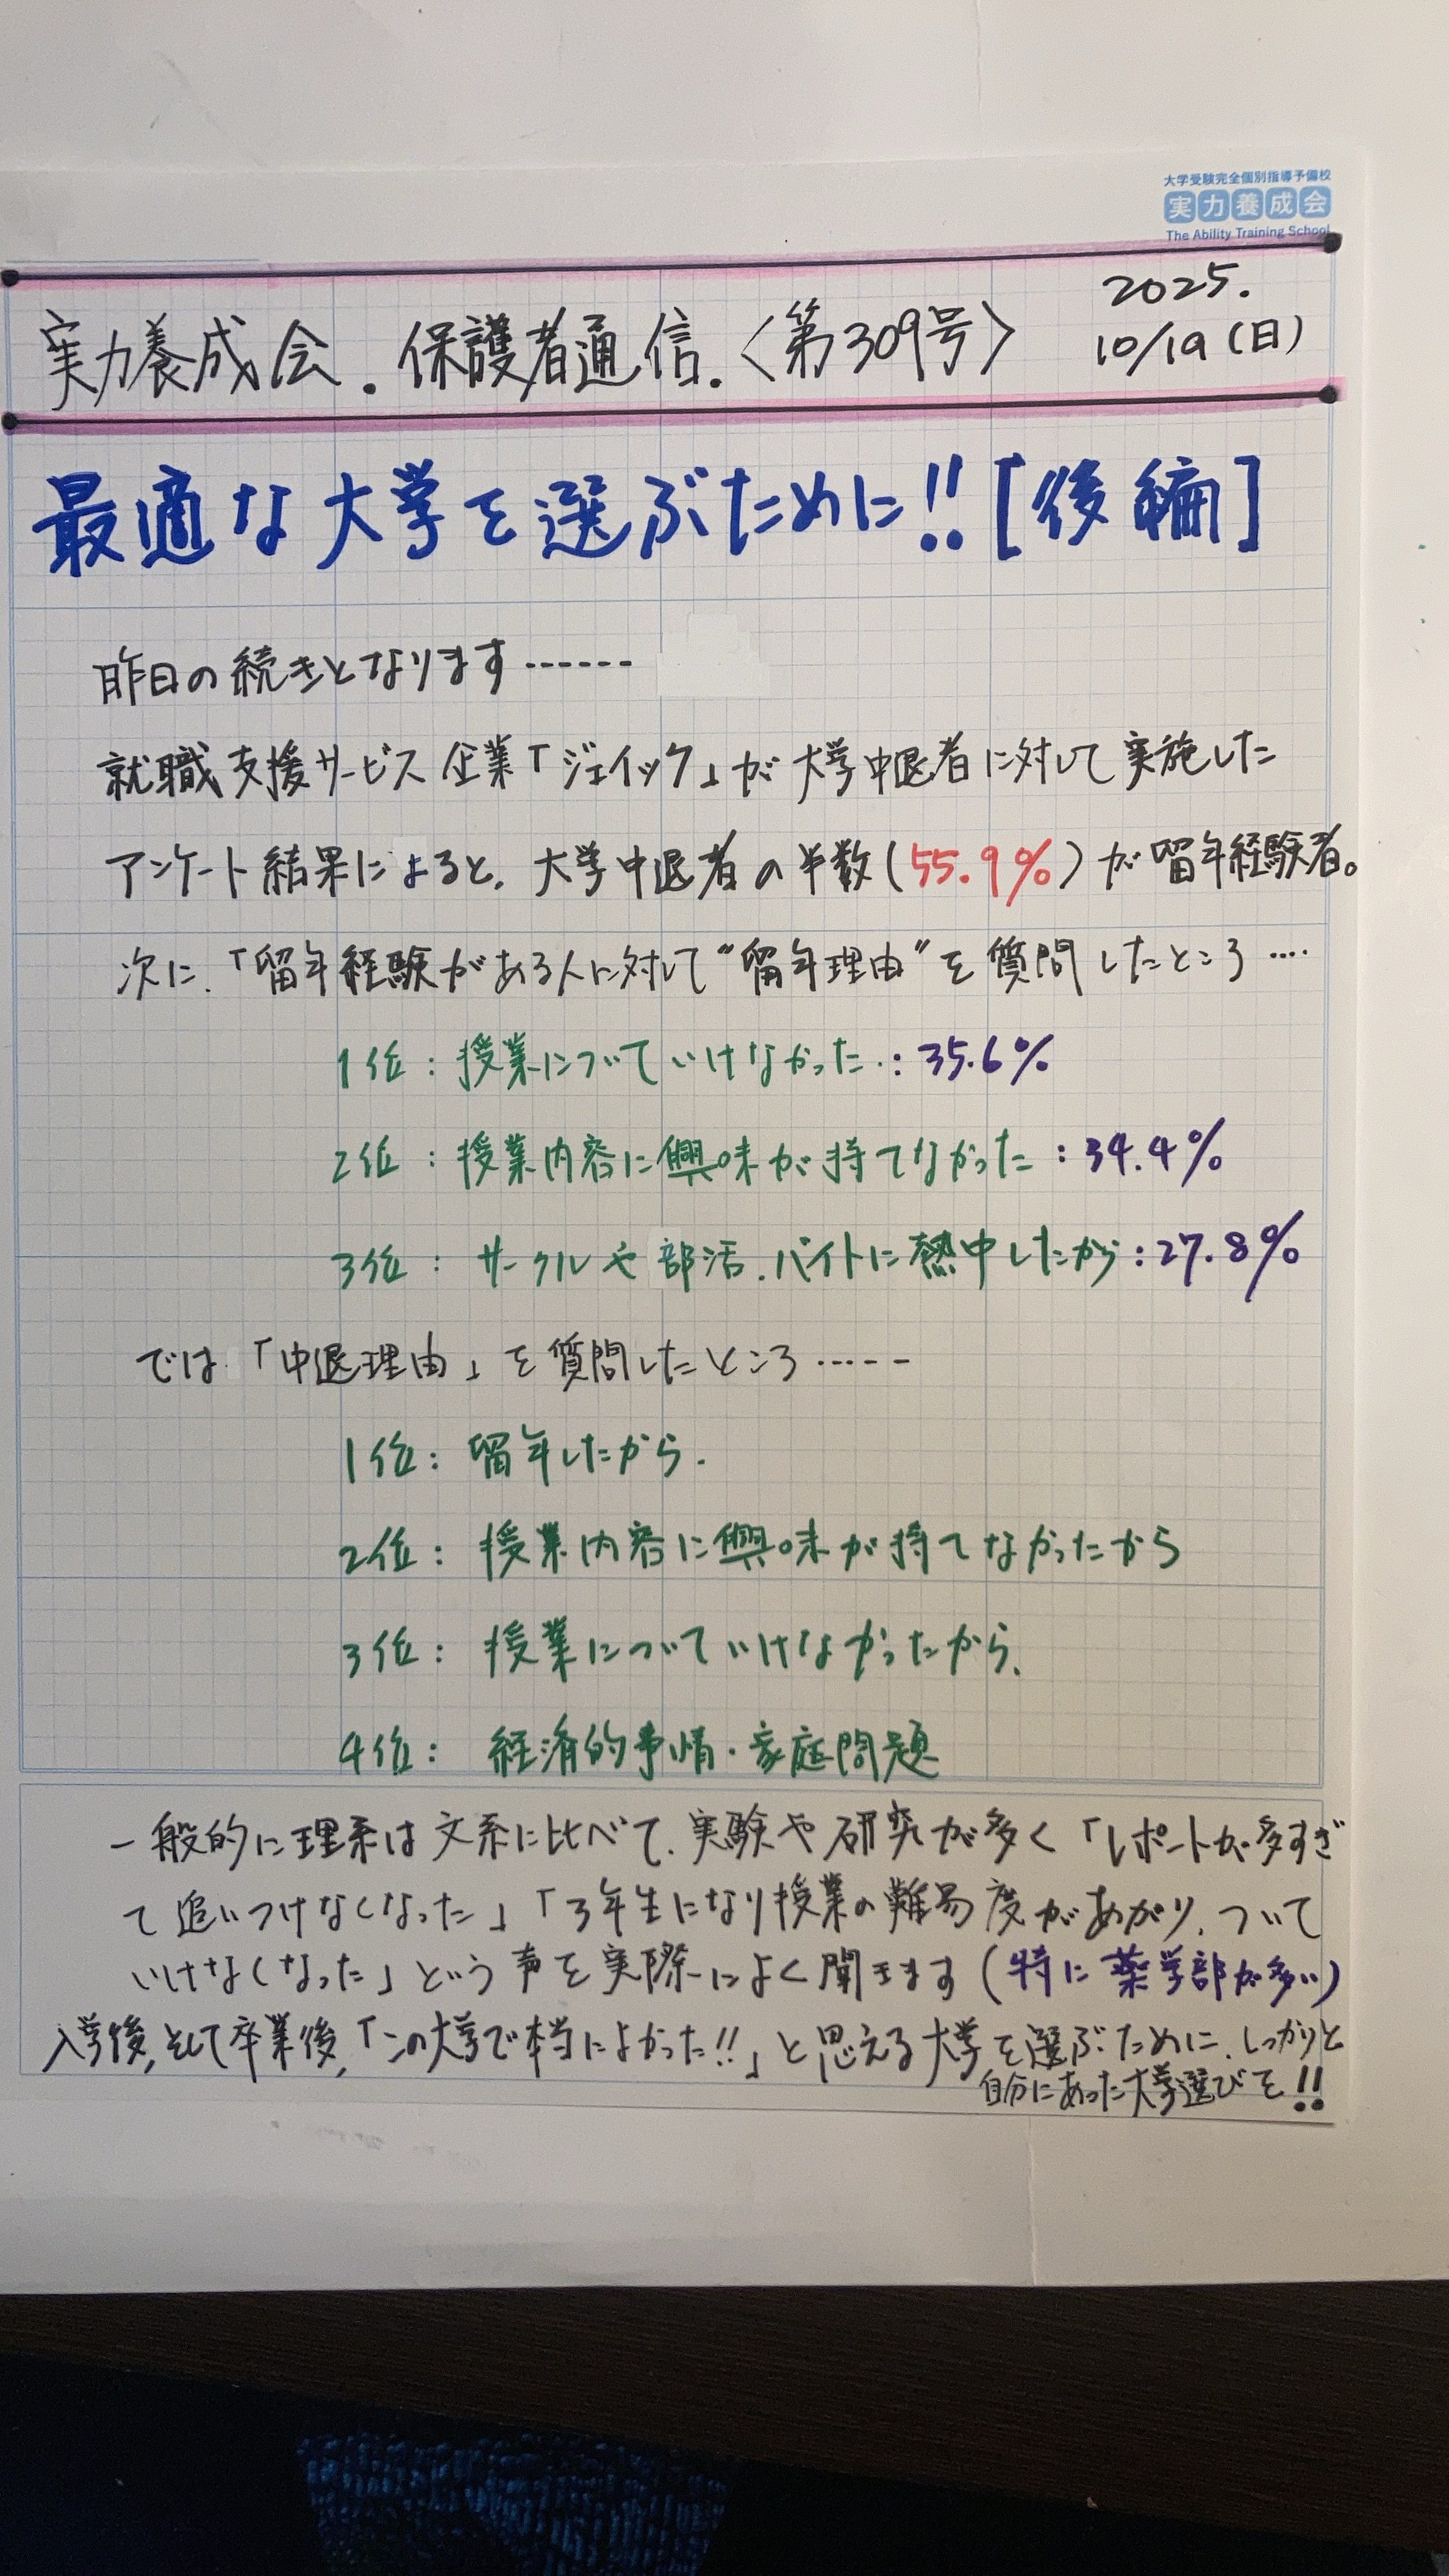 大学受験完全個別指導予備校
実力養成会
The Ability Training School
実力養成会.保護者通信.〈第309号〉
2025.
10/19(日)
最適な大学を選ぶために!![後編]
昨日の続きとなります------
就職支援サービス企業「ジェイック」が大学中退者に対して実施した
アンケート結果によると、大学中退者の半数(55.9%)が留年経験者。
次に、「留年経験がある人に対して"留年理由"を質問したところ....
1位:授業についていけなかった.:35.6%
2位:授業内容に興味が持てなかった:34.4%
3位:サークルや部活、バイトに熱中したから:27.8%
では、「中退理由」を質問したところ-----
1位:留年したから.
2位:授業内容に興味が持てなかったから
3位:授業についていけなかったから、
4位:経済的事情・家庭問題
一般的に理系は文系に比べて、実験や研究が多く「レポートが多すぎ
て追いつけなくなった」「3年生になり授業の難易度があがり、ついて
いけなくなった」という声を実際によく聞きます(特に薬学部が多い)
入学後,そして卒業後,「この大学で本当によかった!!」と思える大学を選ぶために、しっかりと
自分にあった大学選びを!!